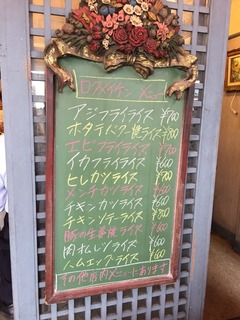 アジフライライス ¥700
ホタテバター焼ライス ¥700
エビフライライス ¥700
イカフライライス ¥600
ヒレカツライス ¥700
メンチカツライス ¥600
チキンカツライス ¥600
チキンソテーライス ¥700
豚の生姜焼ライス ¥600
肉オムレツライス ¥600
ハムエッグライス ¥600
その他店内メニューあります